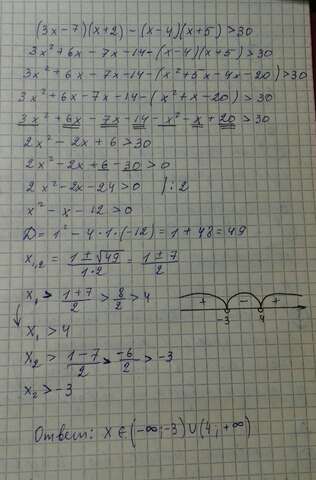 (3x-7)(x+2)-(x-4)(x+5)>30
3x²+6x-7x-14-(x-4)(x+5)>30
3x²+6x-7x-14-(x²+5x-4x-20)>30
3x²+6x-7x-14-(x²+x-20)>30
3x²+6x-7x-14-x²-x+20>30
2x²-2x+6>30
2x²-2x+6-30>0
2x²-2x-24>0 /:2
x²-x-12>0
D=1²-4·1·(-12)=1+48=49
x₁,₂=(1±√49)/(1·2)=(1±7)/2
x₁>(1+7)/2>8/2>4
+ - +
-3 4
x₁>4
x₂>(1-7)/2>-6/2>-3
x₂>-3
Ответ: x∈(-∞;-3)∪(4;+∞)